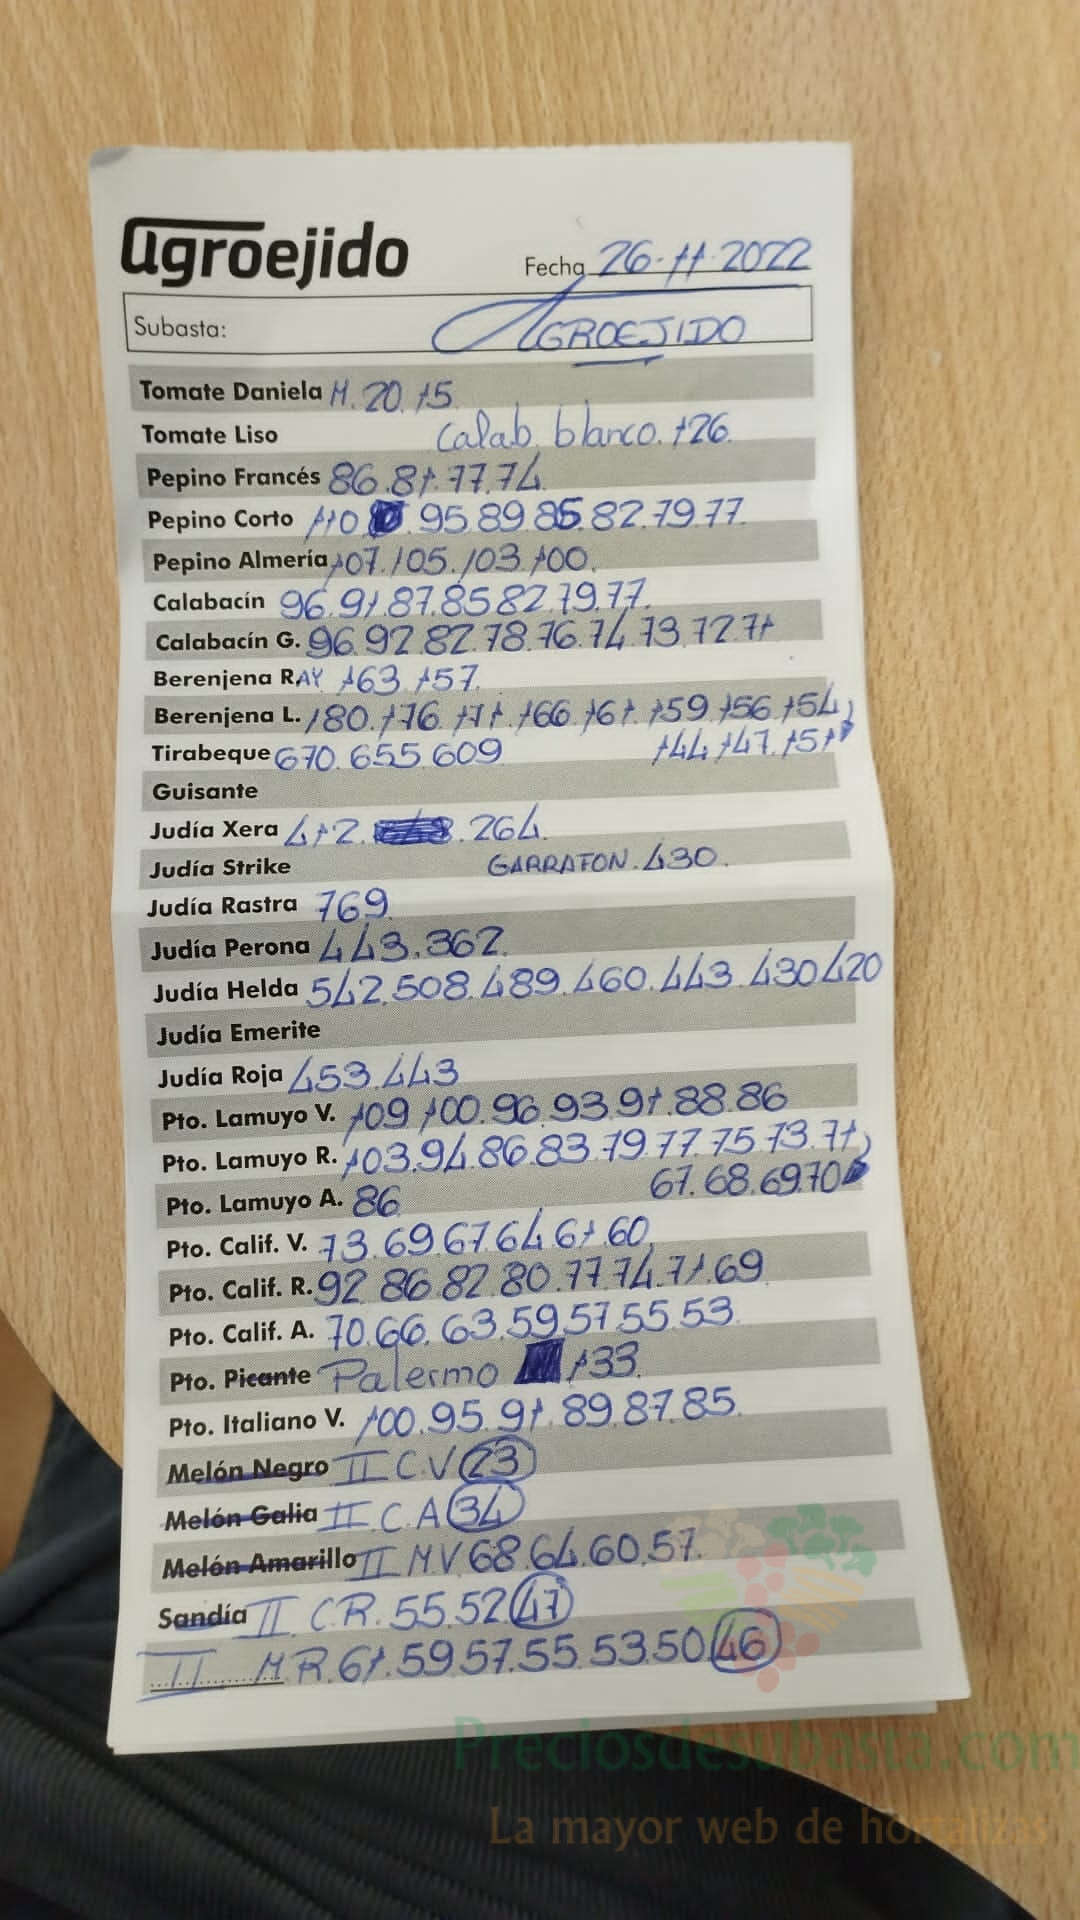 agroejido
Fecha 26-11-2022
Subasta: AGROEJIDO
Tomate Daniela M. 20. 15
Tomate Liso Calab. blanco. 126.
Pepino Francés 86.81.77.74
Pepino Corto 110. .95.89.85.82.79.77
Pepino Almería 107.105.103.100.
Calabacín 96.91.87.85.82.79.77.
Calabacín G. 96.92.82.78.76.74.73.72.71
Berenjena RAY 163.157.
Berenjena L. 180.176.171.166.161.159.156.154
Tirabeque 670.655.609 144.147.151
Guisante
Judía Xera 412. .264.
Judía Strike GARRAFON.430.
Judía Rastra 769
Judía Perona 443.362.
Judía Helda 542.508.489.460.443.430.420
Judía Emerite
Judía Roja 453.443
Pto. Lamuyo V. 109.100.96.93.91.88.86
Pto. Lamuyo R. 103.94.86.83.79.77.75.73.71
Pto. Lamuyo A. 86 67.68.69.70
Pto. Calif. V. 73.69.67.64.61.60
Pto. Calif. R. 92.86.82.80.77.74.71.69
Pto. Calif. A. 70.66.63.59.57.55.53
Pto. Picante Palermo 133.
Pto. Italiano V. 100.95.91.89.87.85.
Melón Negro II C.V 23
Melón Galia II C.A 34
Melón Amarillo II M.V 68.64.60.57.
Sandía II C.R. 55.52 47
II M.R. 61.59.57.55.53.50 46
Preciosdesubasta.com
La mayor web de hortalizas